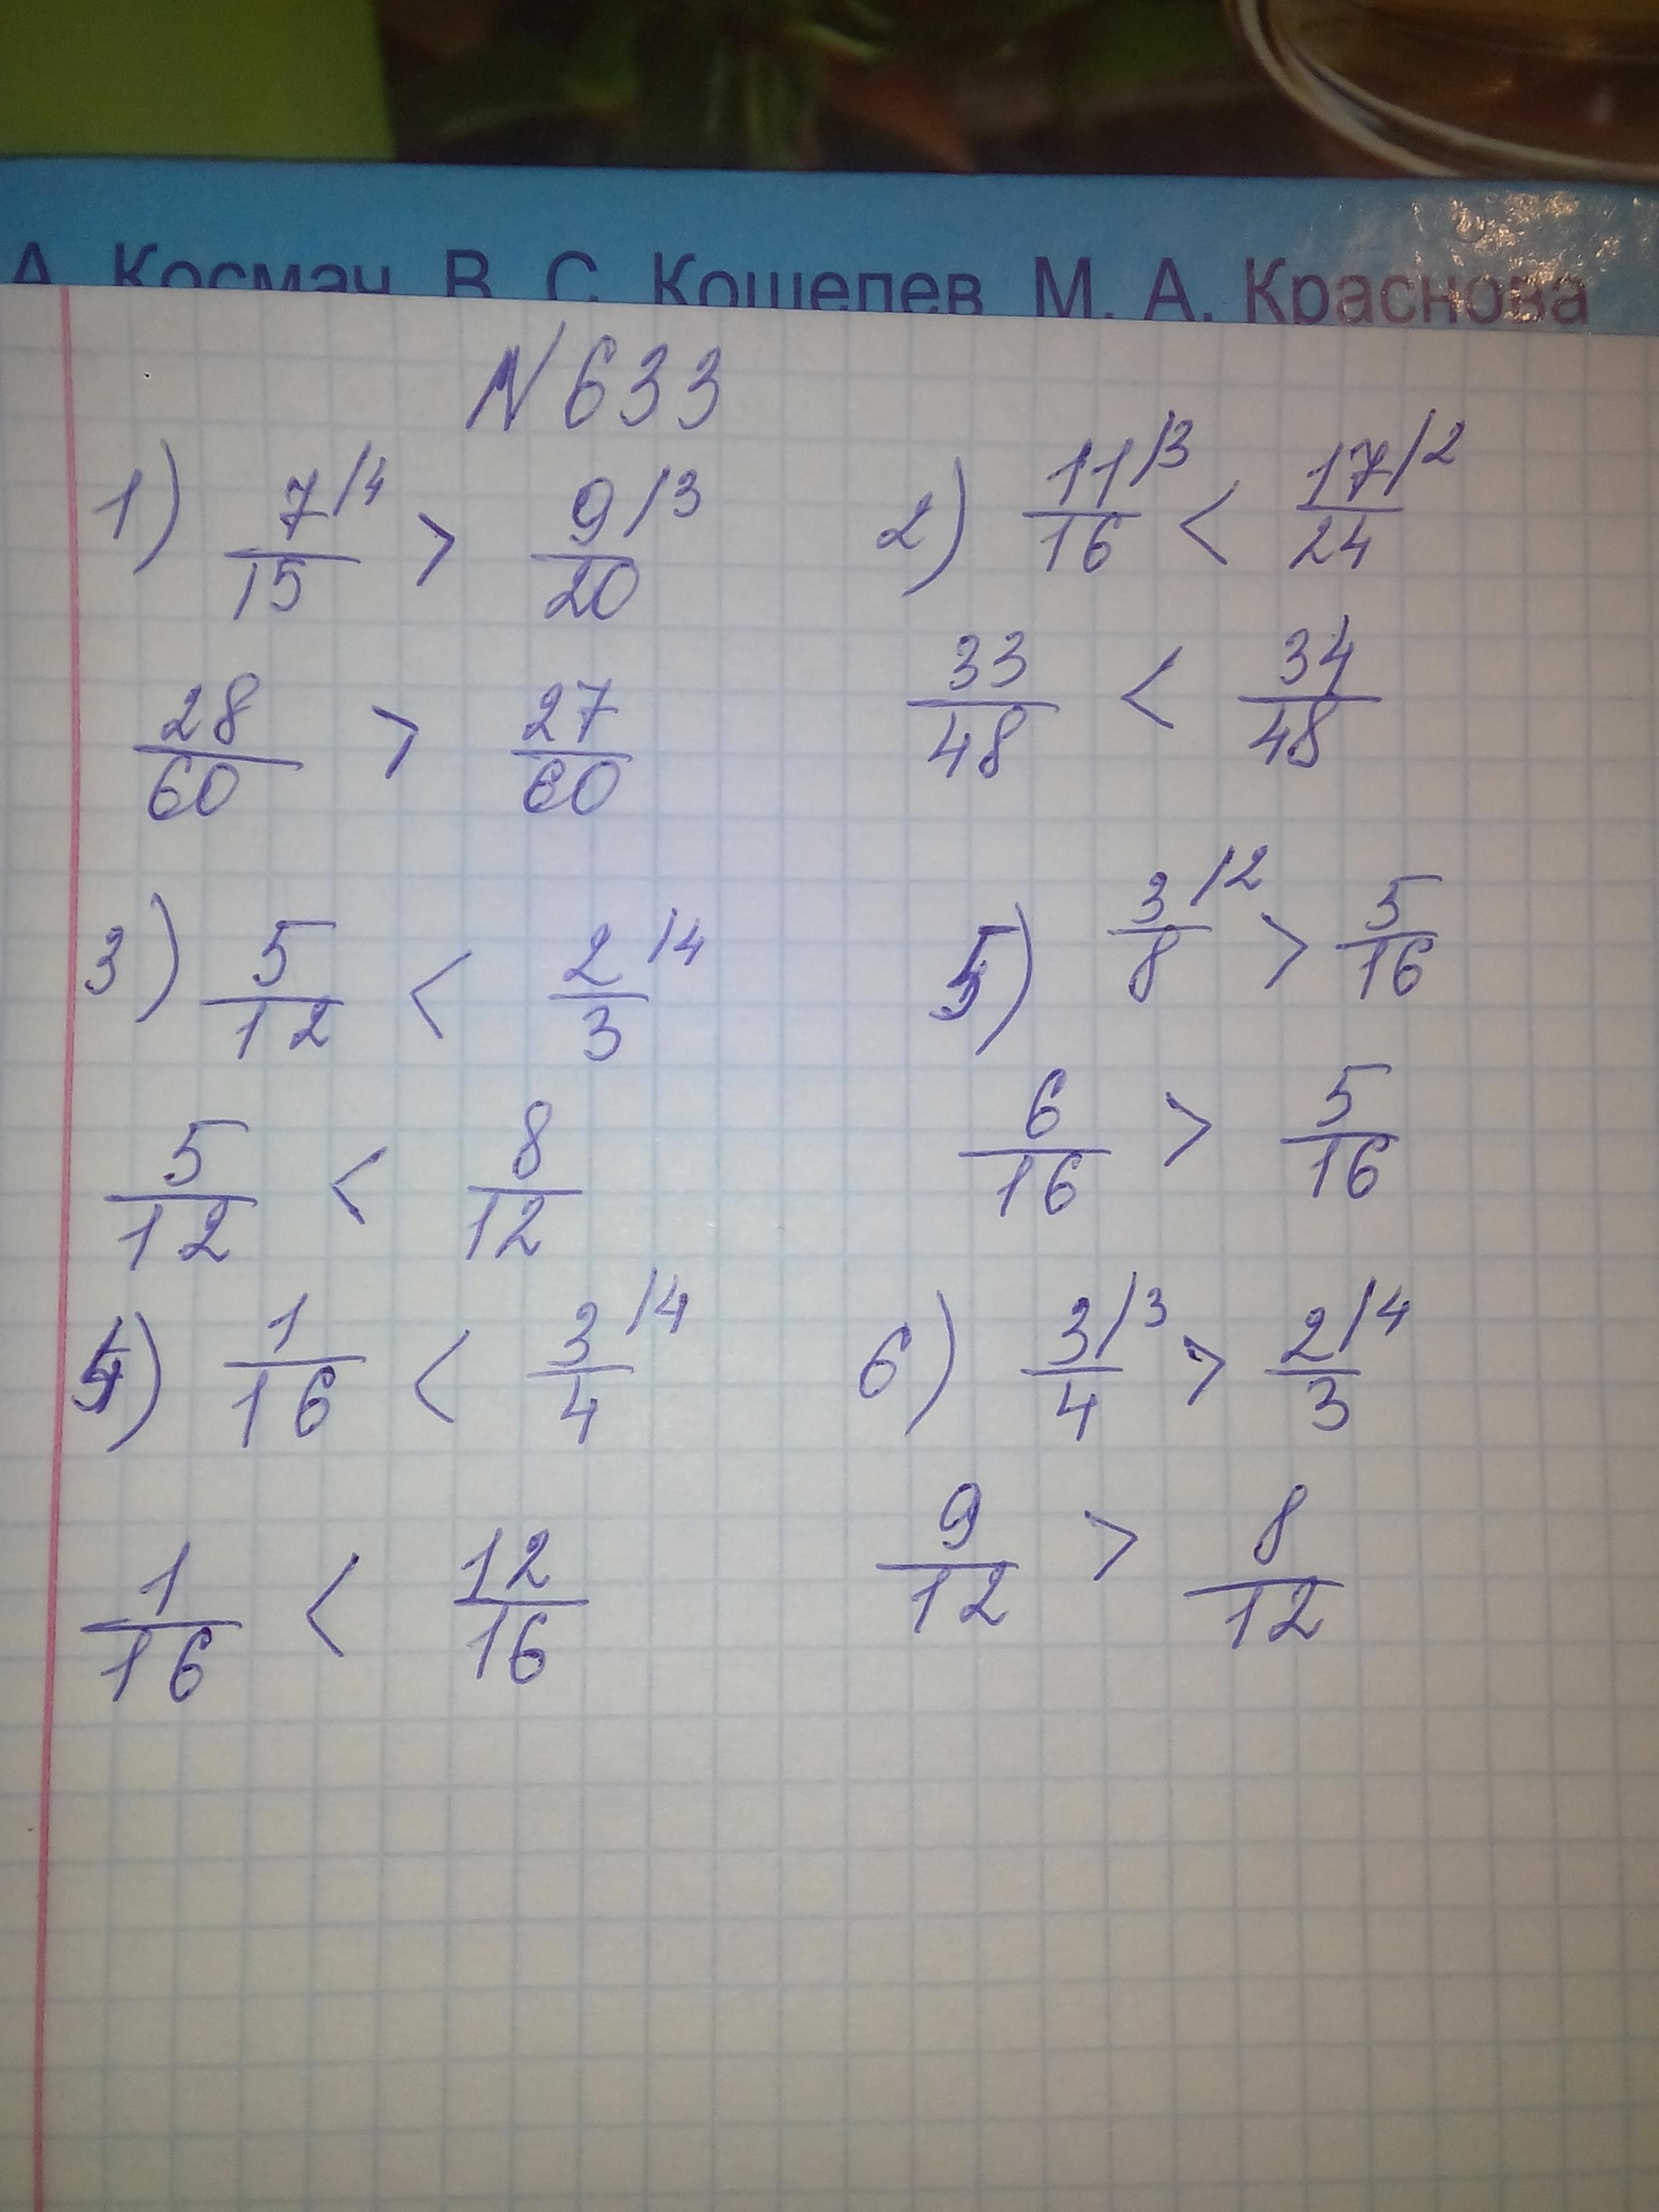 А. Космач, В. С. Кошелев, М. А. Краснова
N 633
1) 7/15 /4 > 9/20 /3
28/60 > 27/60
2) 11/16 /3 < 17/24 /2
33/48 < 34/48
3) 5/12 < 2/3 /4
5/12 < 8/12
5) 3/8 /2 > 5/16
6/16 > 5/16
4) 1/16 < 3/4 /4
1/16 < 12/16
6) 3/4 /3 > 2/3 /4
9/12 > 8/12